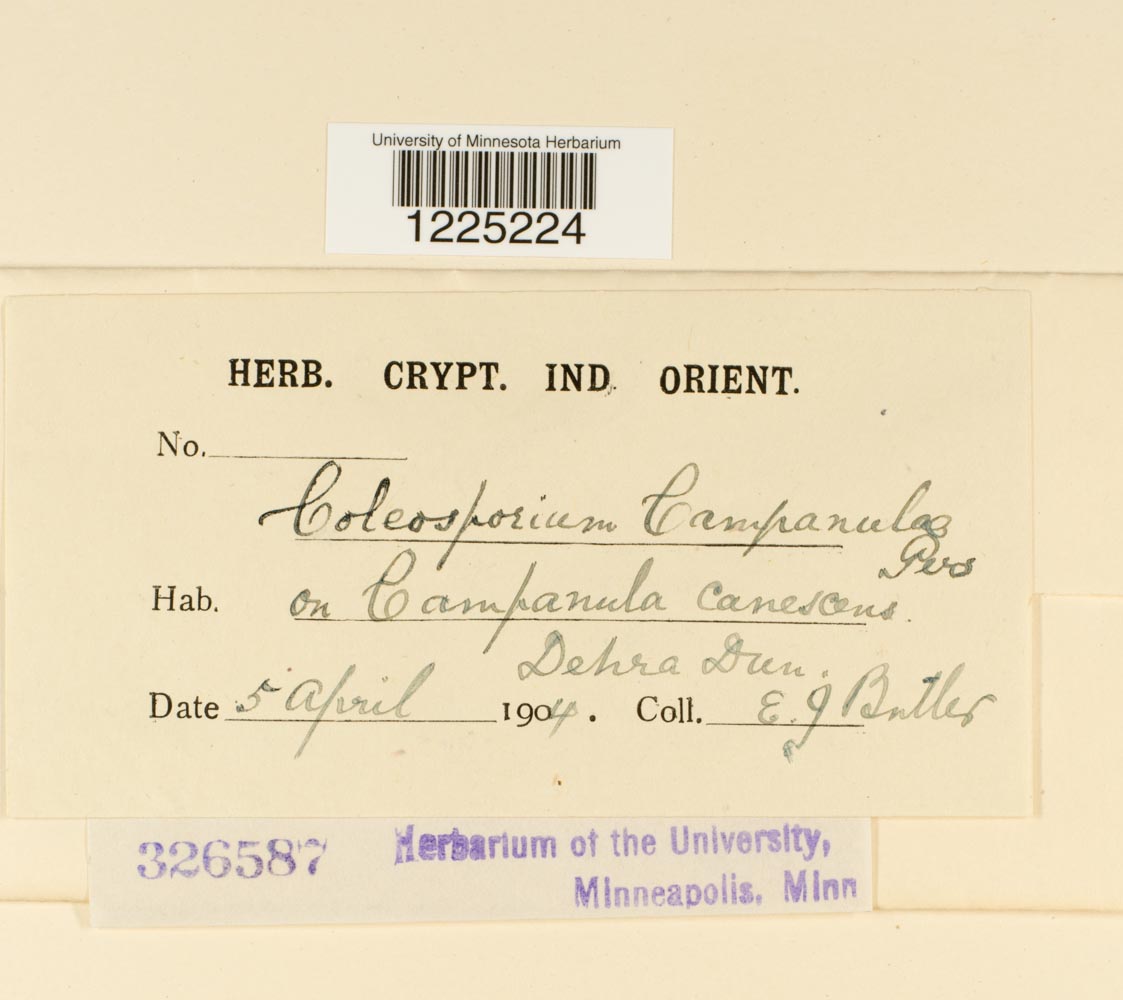 University of Minnesota Herbarium
1225224
HERB. CRYPT. IND. ORIENT.
No.
Coleosporium Campanulae
Pers
Hab. on Campanula canescens.
Dehra Dun.
Date 5 April 1904. Coll. E. J Butler
326587 Herbarium of the University,
Minneapolis, Minn